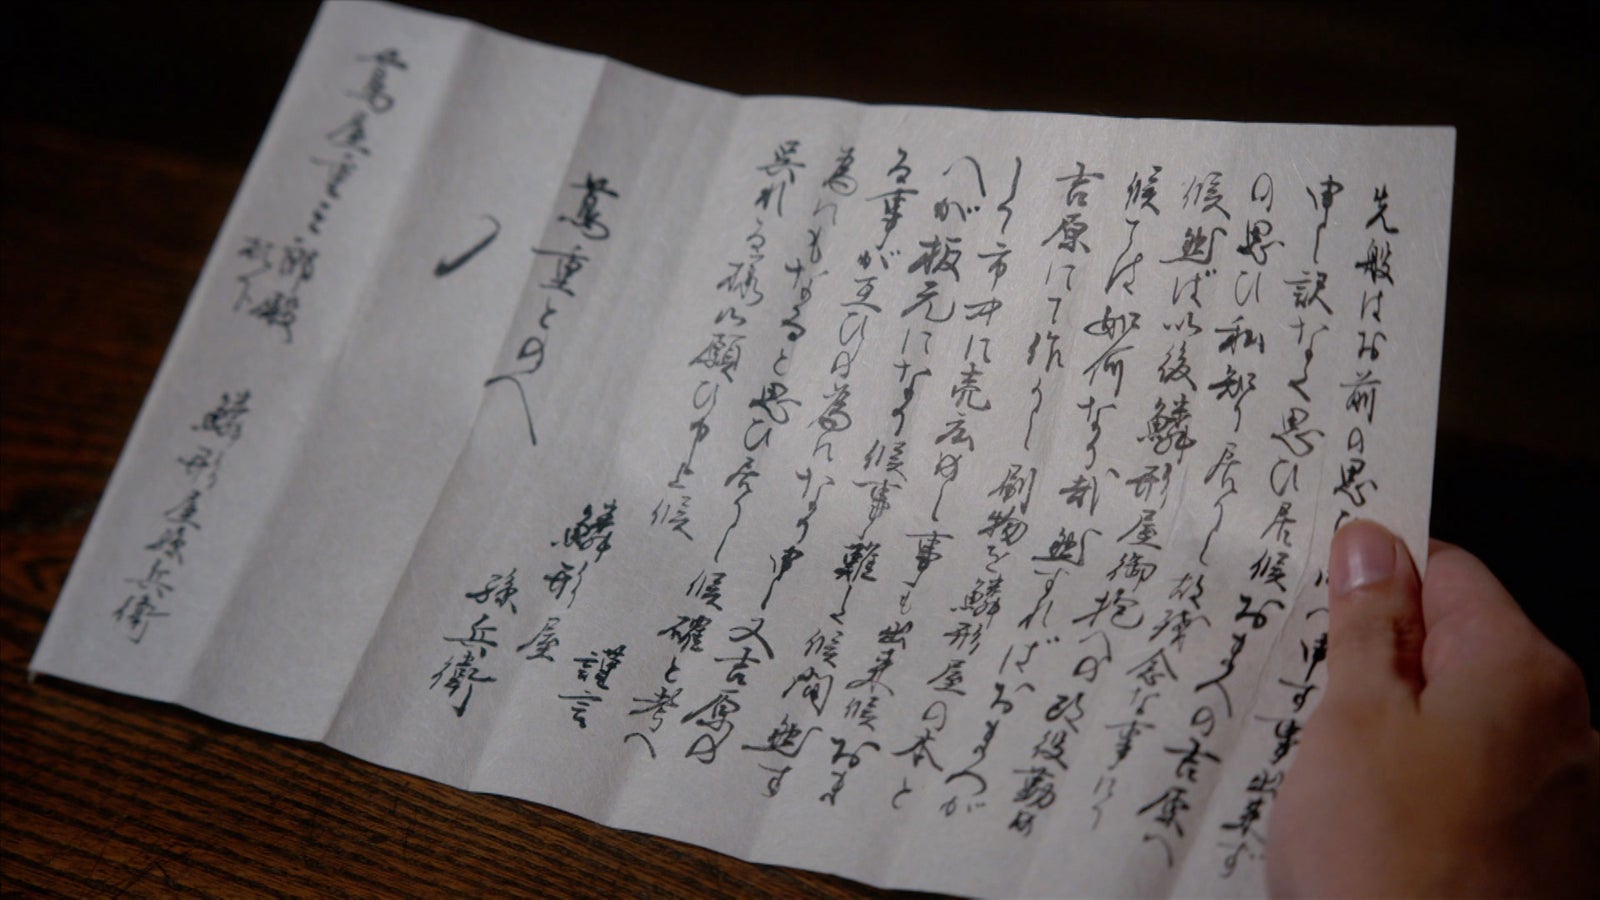 先般はお前の思へ申す事出来ず
申し訳なく思ひ居候おまへの吉原へ
の思ひ私知り居りし故残念な事に
候然ば以後鱗形屋御抱への改役勤め
候ては如何なり哉然すればおまへが
吉原にて作りし刷物を鱗形屋の本と
して市中に売広めし事も出来候おま
へが板元になり候事難く候間然す
る事が互ひの為になり申し又吉原の
為にもなると思ひ居りし候確と考へ
呉れる様に願ひ申上候
謹言
鱗形屋
孫兵衛
蔦重とのへ
蔦屋重三郎殿
机下
鱗形屋孫兵衛